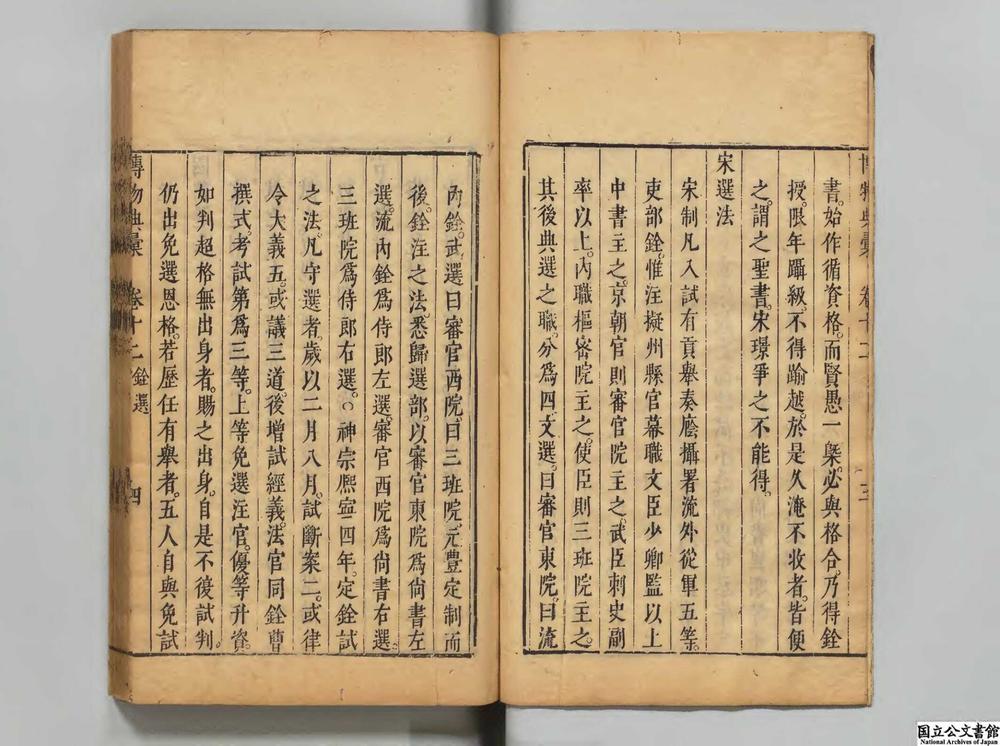 博物典彙 卷十二 三
書。始作循資格。而賢愚一槩。必與格合。乃得銓
授。限年躡級。不得踰越。於是久淹不收者。皆便
之。謂之聖書。宋璟爭之不能得。
宋選法
宋制凡入試有貢舉奏廕攝署流外從軍五等。
吏部銓。惟注擬州縣官幕職文臣少卿監以上
中書主之。京朝官則審官院主之。武臣刺史副
率以上。內職樞密院主之。使臣則三班院主之。
其後典選之職。分爲四。文選。曰審官東院。曰流
內銓。武選曰審官西院。曰三班院。元豐定制而
後。銓注之法。悉歸選部。以審官東院爲尚書左
選。流內銓爲侍郎左選。審官西院爲尚書右選。
三班院爲侍郎右選。○神宗熙寧四年。定銓試
之法。凡守選者。歲以二月八月。試斷案二。或律
令大義五。或議三道。後增試經義。法官同銓曹
撰式。考試第爲三等。上等免選注官。優等升資。
如判超格無出身者。賜之出身。自是不復試判。
仍出免選恩格。若歷任有舉者。五人自與免試
博物典彙 卷十二 銓選 四
国立公文書館
National Archives of Japan